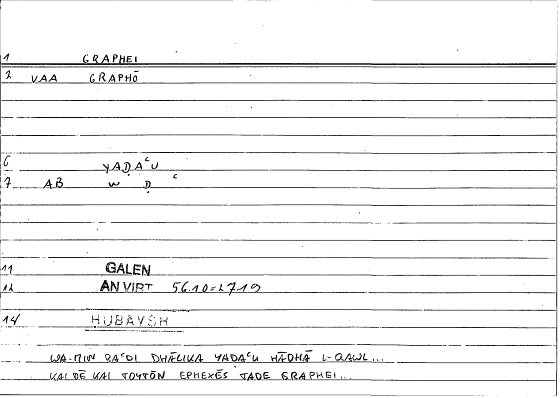 1 GRAPHEI
2 VAA GRAPHŌ
6 YAḌAʿU
7 AB W Ḍ ʿ
11 GALEN
12 AN VIRT 56.10=2719
14 HUBAYSH
WA-MIN BAʿDI DHĀLIKA YAḌAʿU HĀDHĀ L-QAWL...
KAI DĒ KAI TOYTŌN EPHEXĒS TADE GRAPHEI...